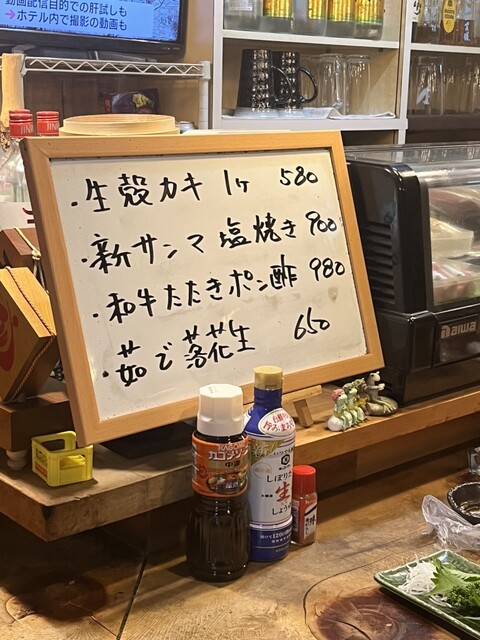 動画配信目的での肝試しも
→ホテル内で撮影の動画も
・生殻カキ 1ヶ 580
・新サンマ塩焼き 900
・和牛たたきポン酢 980
・茹で落花生 650
aiwa
カゴメソース
中濃
しぼりたて
生
しょうゆ